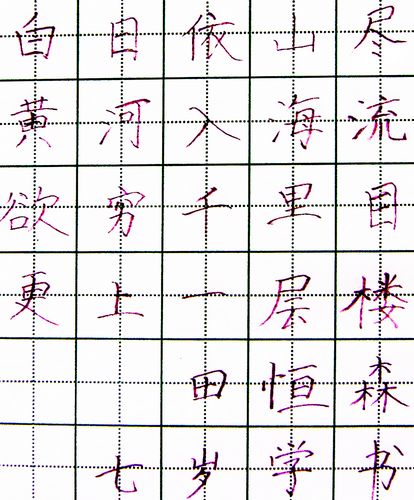 白日依山尽
黄河入海流
欲穷千里目
更上一层楼
田恒森
七岁学书